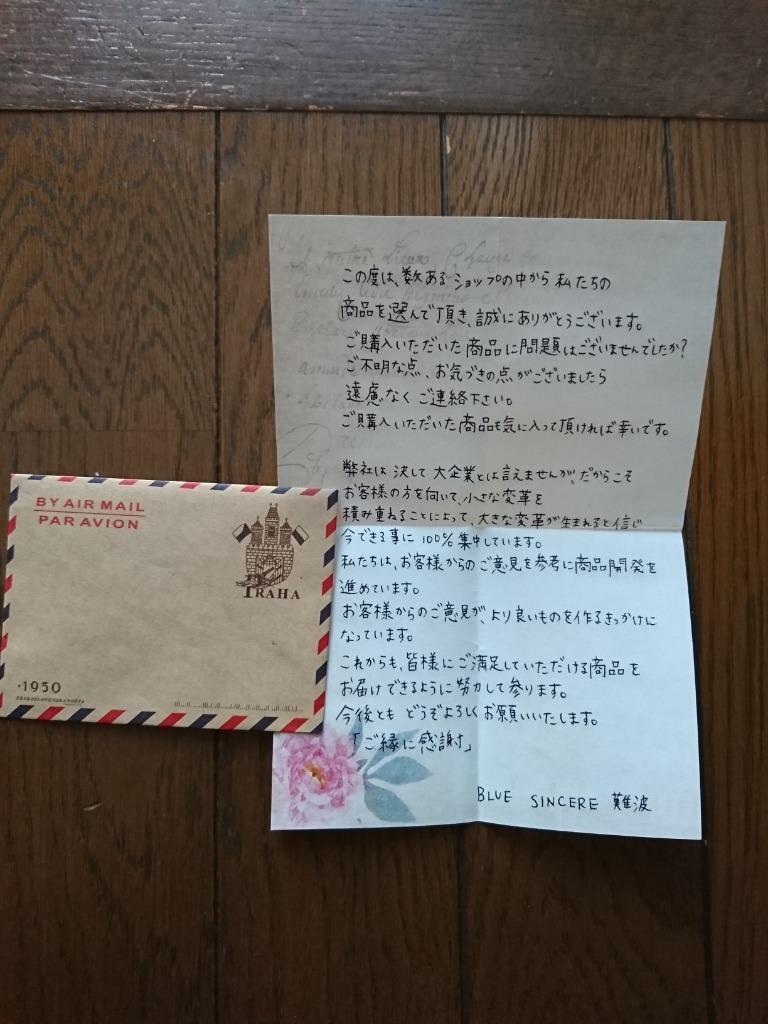 この度は、数あるショップの中から私たちの
商品を選んで頂き、誠にありがとうございます。
ご購入いただいた商品に問題はございませんでしたか?
ご不明な点、お気づきの点がございましたら
遠慮なくご連絡下さい。
ご購入いただいた商品も気に入って頂ければ幸いです。
弊社は決して大企業とは言えませんが、だからこそ
お客様の方を向いて、小さな変革を
積み重ねることによって、大きな変革が生まれると信じ
今できる事に100%集中しています。
私たちは、お客様からのご意見を参考に商品開発を
進めています。
お客様からのご意見が、より良いものを作るきっかけに
なっています。
これからも、皆様にご満足していただける商品を
お届けできるように努力して参ります。
今後ともどうぞよろしくお願いいたします。
「ご縁に感謝」
BLUE SINCERE 難波
BY AIR MAIL
PAR AVION
PRAHA
·1950